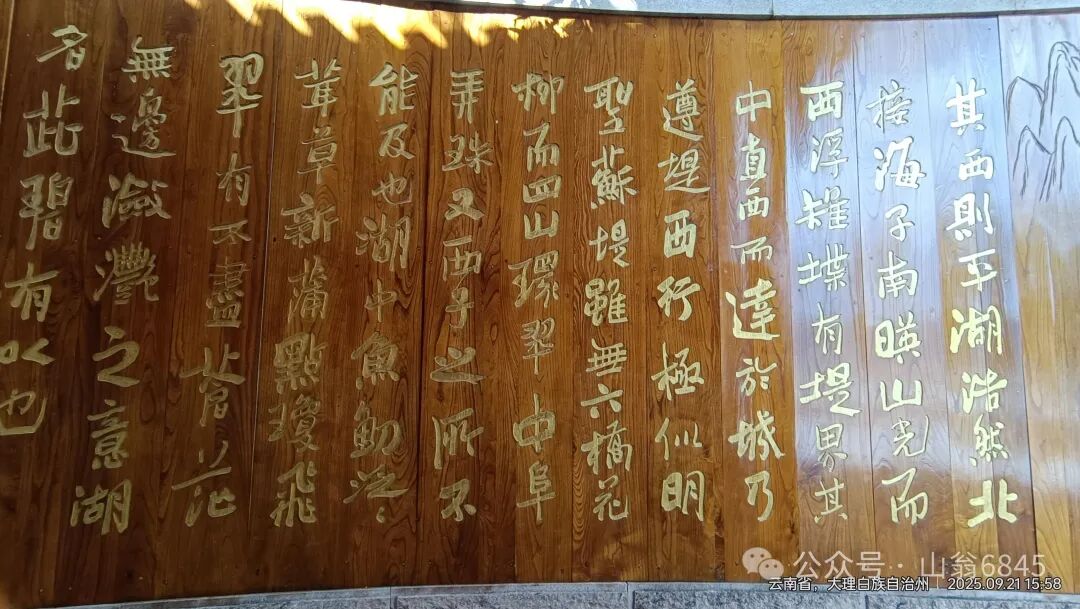 其西則平湖浩然北
接海子南暎山光而
西浮雉堞有堤界其
中直西而達於城乃
遵堤西行極似明
聖蘇堤雖無六橋花
柳而四山環翠中阜
弄珠又西子之所不
能及也湖中魚泛〻
茸草新蒲點瓊飛
翠有不盡蒼茫
無邊瀲灩之意湖
名茈碧有以也
公众号·山翁6845
云南省，大理白族自治州 | 2025.09.21 15:58